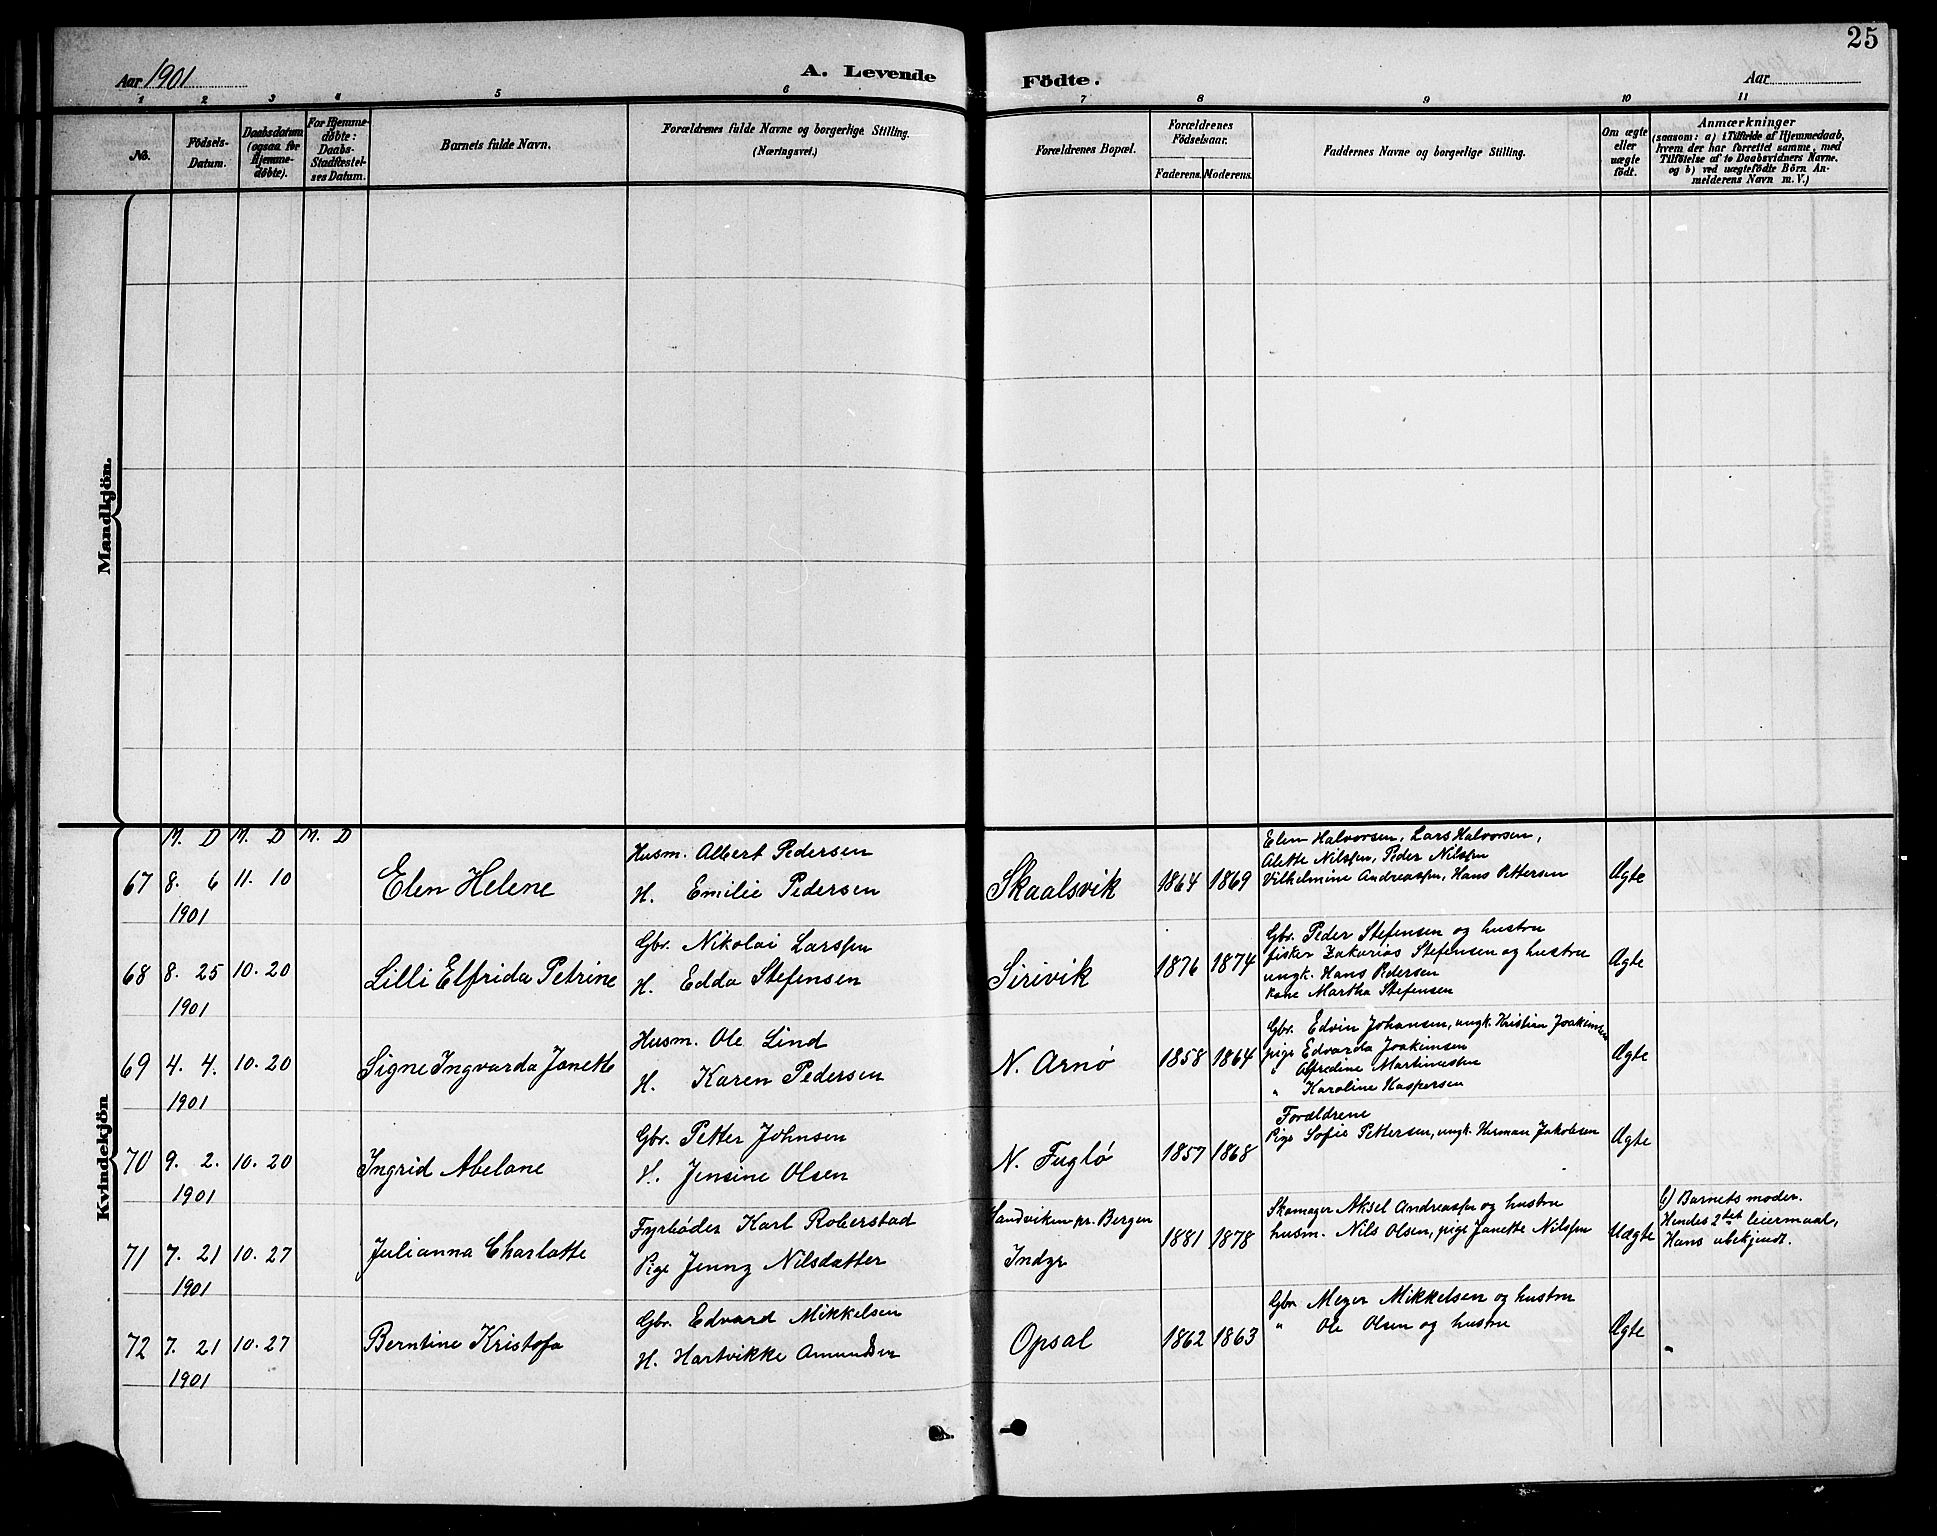 25
Aar 1901
A. Levende
Födte.
Aar
1 2 3 4 5 6 7 8 9 10 11
No.
Födsels-Datum.
Daabsdatum (ogsaa for Hjemmedøbte).
For Hjemmedøbte: Daabs-Stadfæstelses Datum.
Barnets fulde Navn.
Forældrenes fulde Navne og borgerlige Stilling.
(Næringsvei.)
Forældrenes Bopæl.
Forældrenes Födselsaar.
Faderens. Moderens.
Faddernes Navne og borgerlige Stilling.
Om ægte eller uægte födt.
Anmærkninger
(saasom: a) i Tilfælde af Hjemmedaab,
hvem der har forrettet samme, med
Tilföielse af to Daabsvidners Navne.
og b) ved uægtefödte Börn An-
melderens Navn m. V.)
Mandkjön.
Kvindekjön
M. D M. D M. D
67 8. 6 11. 10
1901
Elen Helene
Husm. Albert Pedersen
H. Emilie Pedersen
Skaalsvik
1864 1869
Elen Halvorsen, Lars Halvorsen,
Alette Nilssen, Peder Nilssen
Vilhelmine Andreassen, Hans Pettersen
Ægte
68 8. 25 10. 20
1901
Lilli Elfrida Petrine
Gbr. Nikolai Larssen
H. Edda Stefensen
Sirivik
1876 1874
Gbr. Peder Stefensen og hustru
fisker Zakarias Stefensen og hustru
ungk. Hans Pedersen
Kone Martha Stefensen
Ægte
69 4. 4. 10. 20
1901
Signe Ingvarda Janette
Husm. Ole Lind
H. Karen Pedersen
N. Arnö
1858 1864
Gbr. Edvin Johansen, ungk. Kristian Joakimsen
pige Edvarda Joakimsen
" Alfredine Martinussen
" Karoline Kaspersen
Ægte
70 9. 2. 10. 20
1901
Ingrid Abelone
Gbr. Petter Johnsen
H. Jensine Olsen
N. Fuglö
1857 1868
Forældrene
Pige Sofie Pettersen, ungk. Herman Jakobsen
Ægte
71 7. 21 10. 27
1901
Julianna Charlotte
Fyrböder Karl Roberstad
Pige Jenny Nilsdatter
Sandviken pr. Bergen
Indyr
1881 1878
Skomager Aksel Andreassen og hustru
husm. Nils Olsen, pige Janette Nilssen
Uægte
b) Barnets moder.
Hendes 2det leiermaal,
Hans ubekjendt.
72 7. 21 10. 27
1901
Berntine Kristofa
Gbr. Edvard Mikkelsen
H. Hartvikke Amundsen
Opsal
1862 1863
Gbr Meyer Mikkelsen og hustru
" Ole Olsen og hustru
Ægte
"